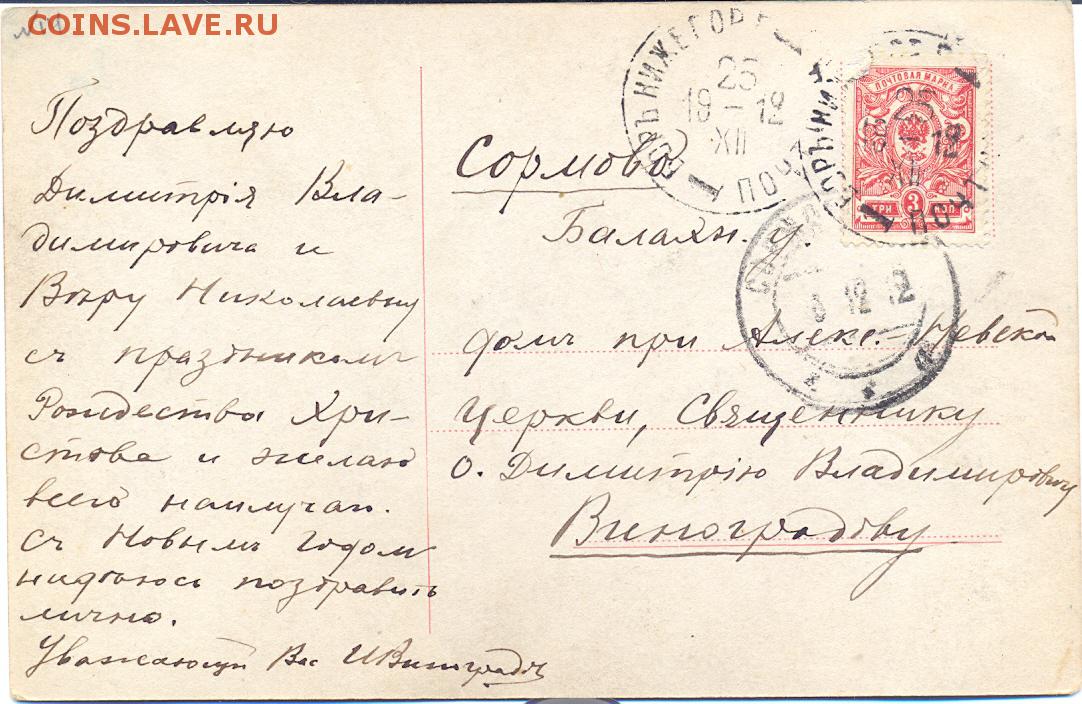 COINS.LAVE.RU
Поздравляю
Димитрія Вла-
димировича и
Вѣру Николаевну
съ праздникомъ
Рождества Хри-
стова и желаю
всего наилучш.
Съ Новымъ Годомъ
надѣюсь поздравить
лично.
Уважающій Вас И Виноградъ
НИЖЕГОР
26
19 – 12
XII
ПОЧТ
ПОЧТОВАЯ МАРКА
ТРИ 3 КОП
Сормово
Балахн. у.
домъ при Алекс.-Невской
Церкви, Священнику
о. Димитрію Владимировичу
Виноградову
12 12